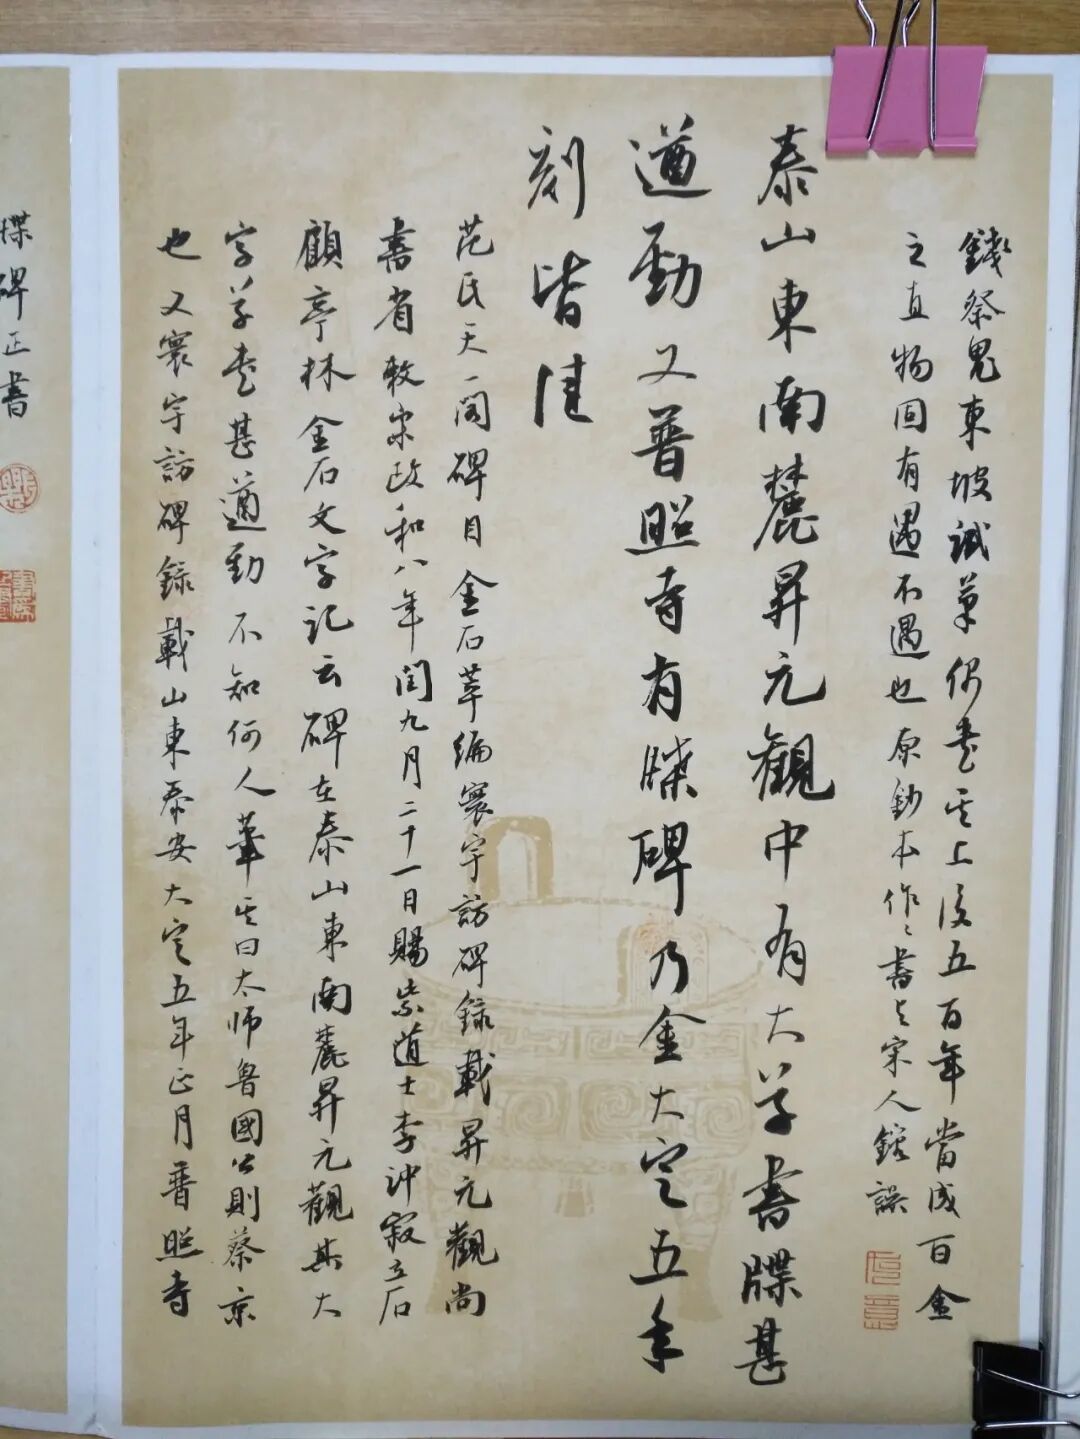 錢祭鬼東坡試筆偶書其上後五百年當成百金
之直物固有遇不遇也原鈔本作書乞宋人鎔誤
泰山東南麓昇元觀中有大字書牒甚
遒勁又普照寺有牒碑乃金大定五年
刻皆佳
范氏天一閣碑目金石萃編寰宇訪碑錄載昇元觀尚
書省敕宋政和八年閏九月二十一日賜紫道士李沖寂立石
顧亭林金石文字記云碑在泰山東南麓昇元觀其大
字草書甚遒勁不知何人筆其曰太师魯國公則蔡京
也又寰宇訪碑錄載山東泰安大定五年正月普照寺
牒碑正書